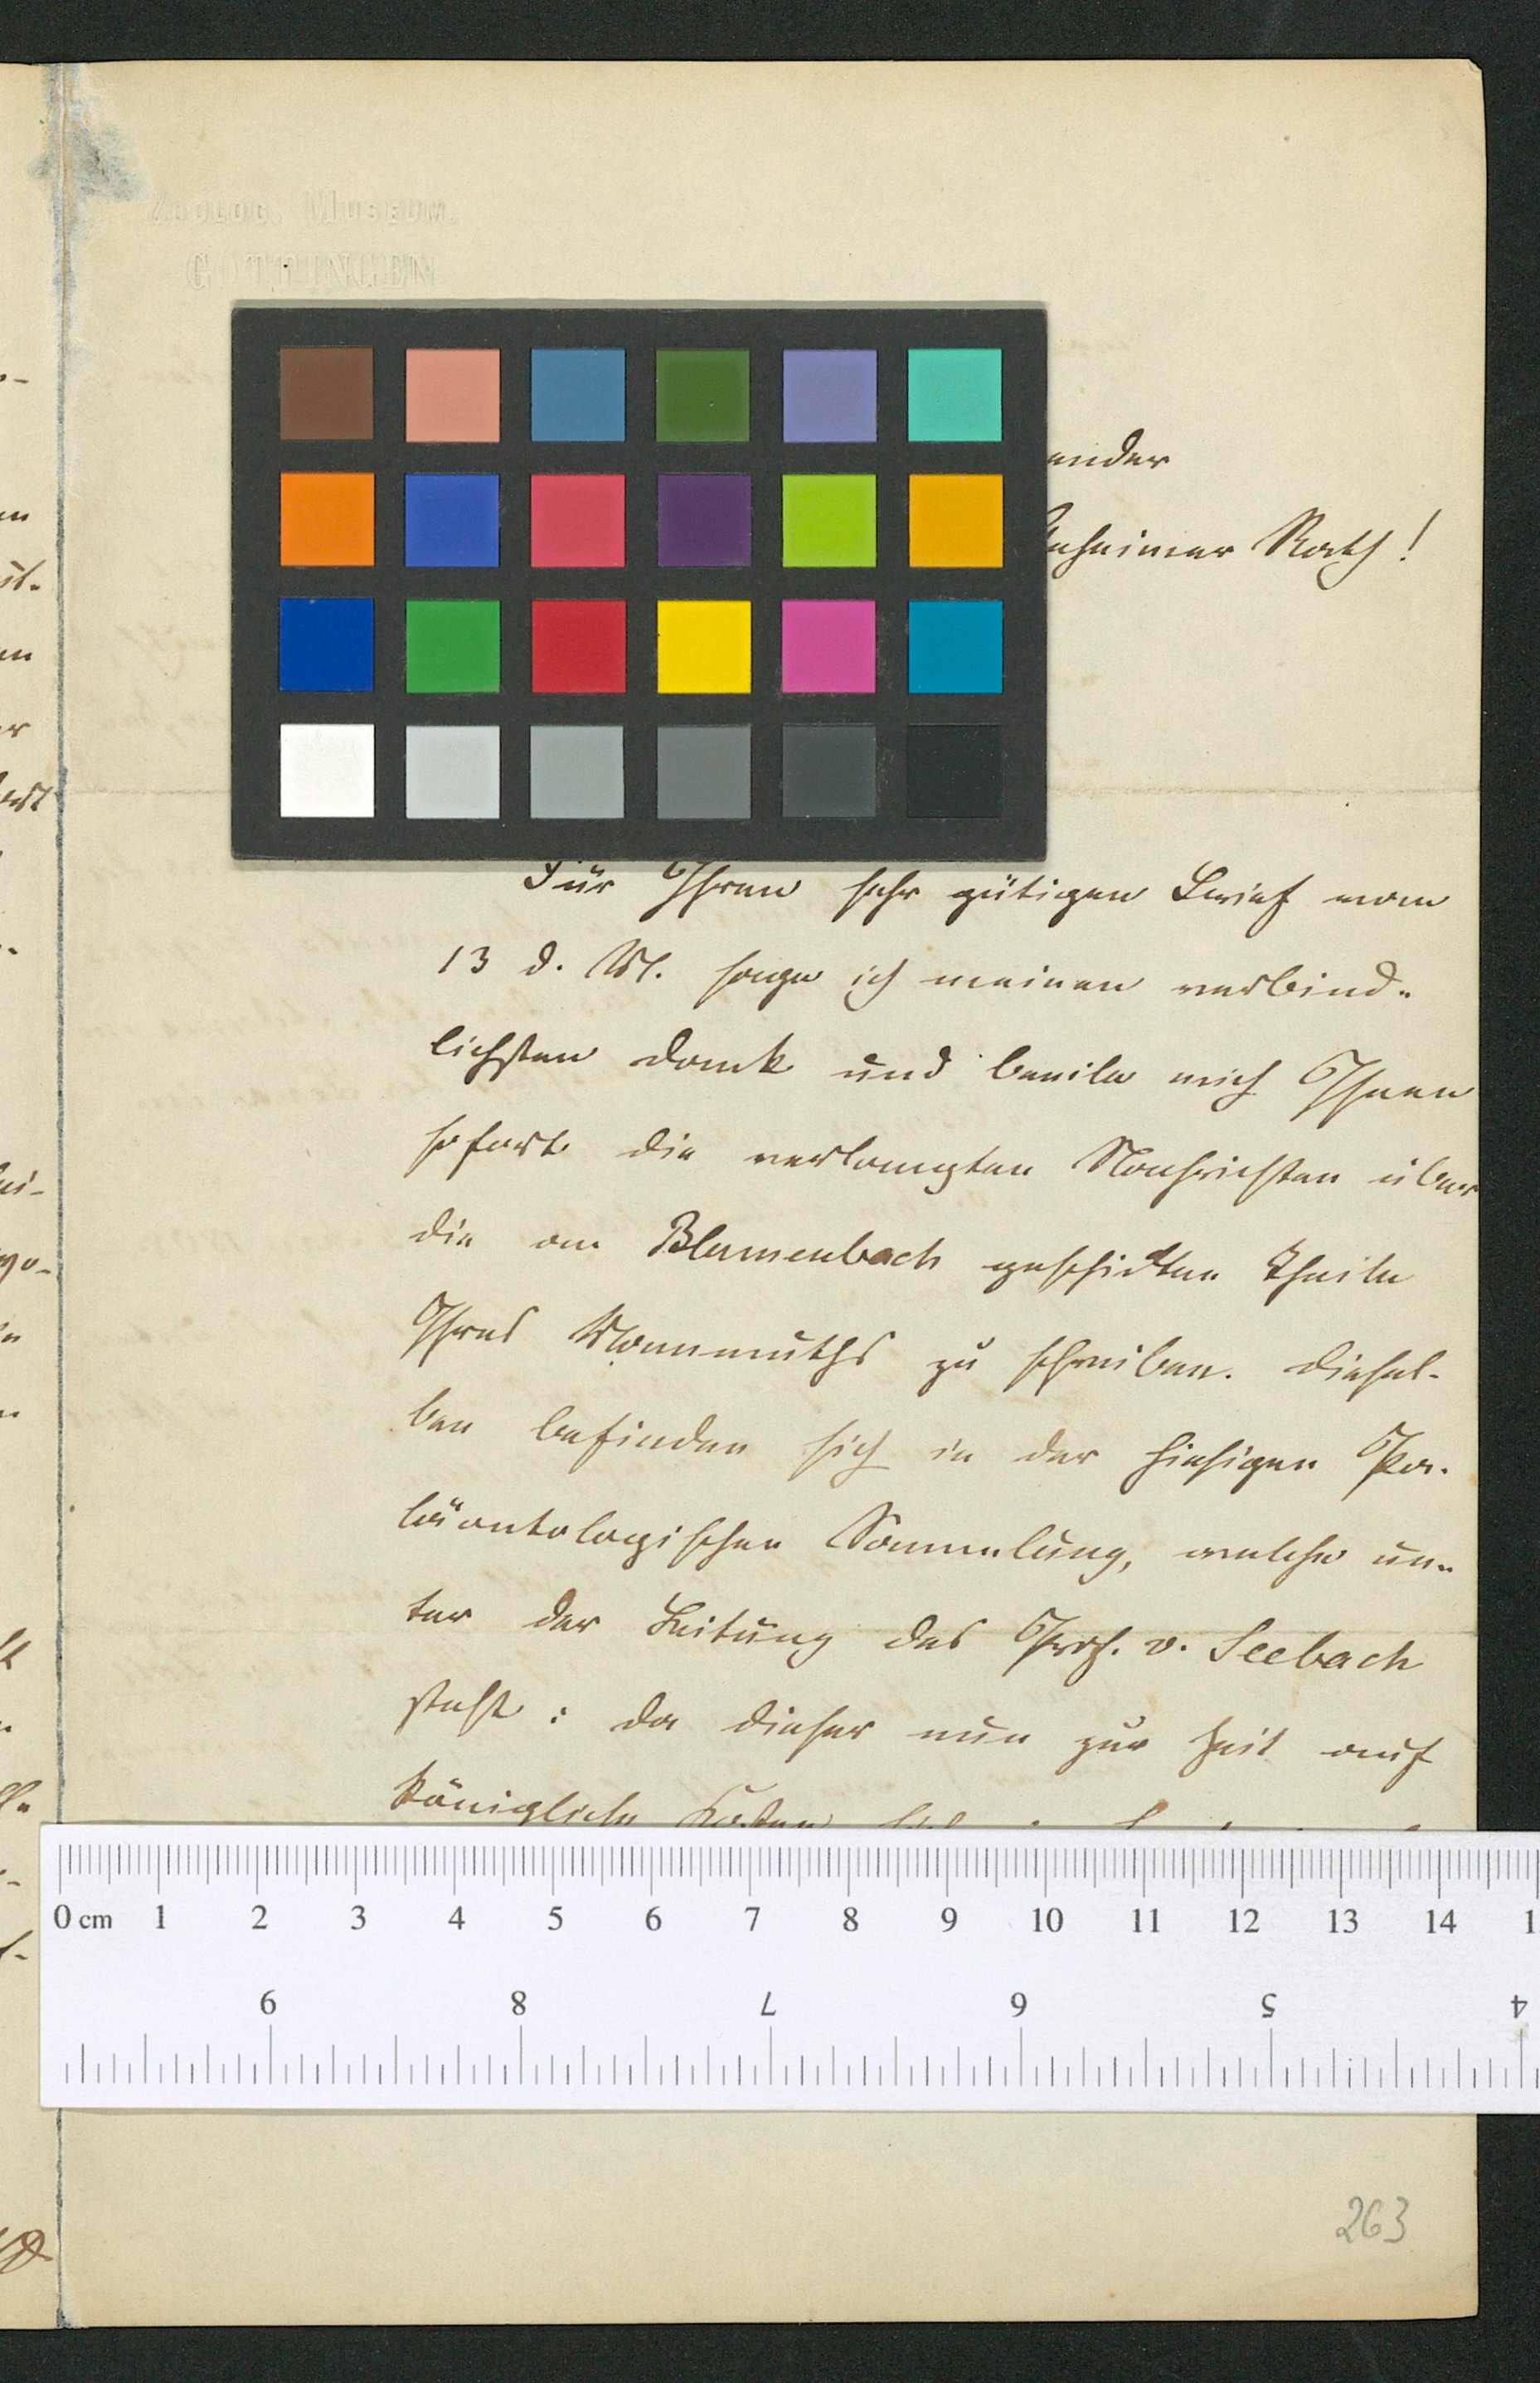 ZOOLOG. MUSEUM.
GÖTTINGEN
ender
Geheimer Rath!
Für Ihren sehr gütigen Brief vom
13 d. M. sage ich meinen verbind-
lichsten Dank und beeile mich Ihnen
sofort die verlangten Nachrichten über
die an Blumenbach geschickten Theile
Ihres Mammuths zu schreiben. Diesel-
ben befinden sich in der hiesigen Pa-
läontologischen Sammlung, welche un-
ter der Leitung des Prof. v. Seebach
steht: da dieser nun zur Zeit auf
königliche Kosten
0 cm 1 2 3 4 5 6 7 8 9 10 11 12 13 14 1
9 8 7 6 5 4
263